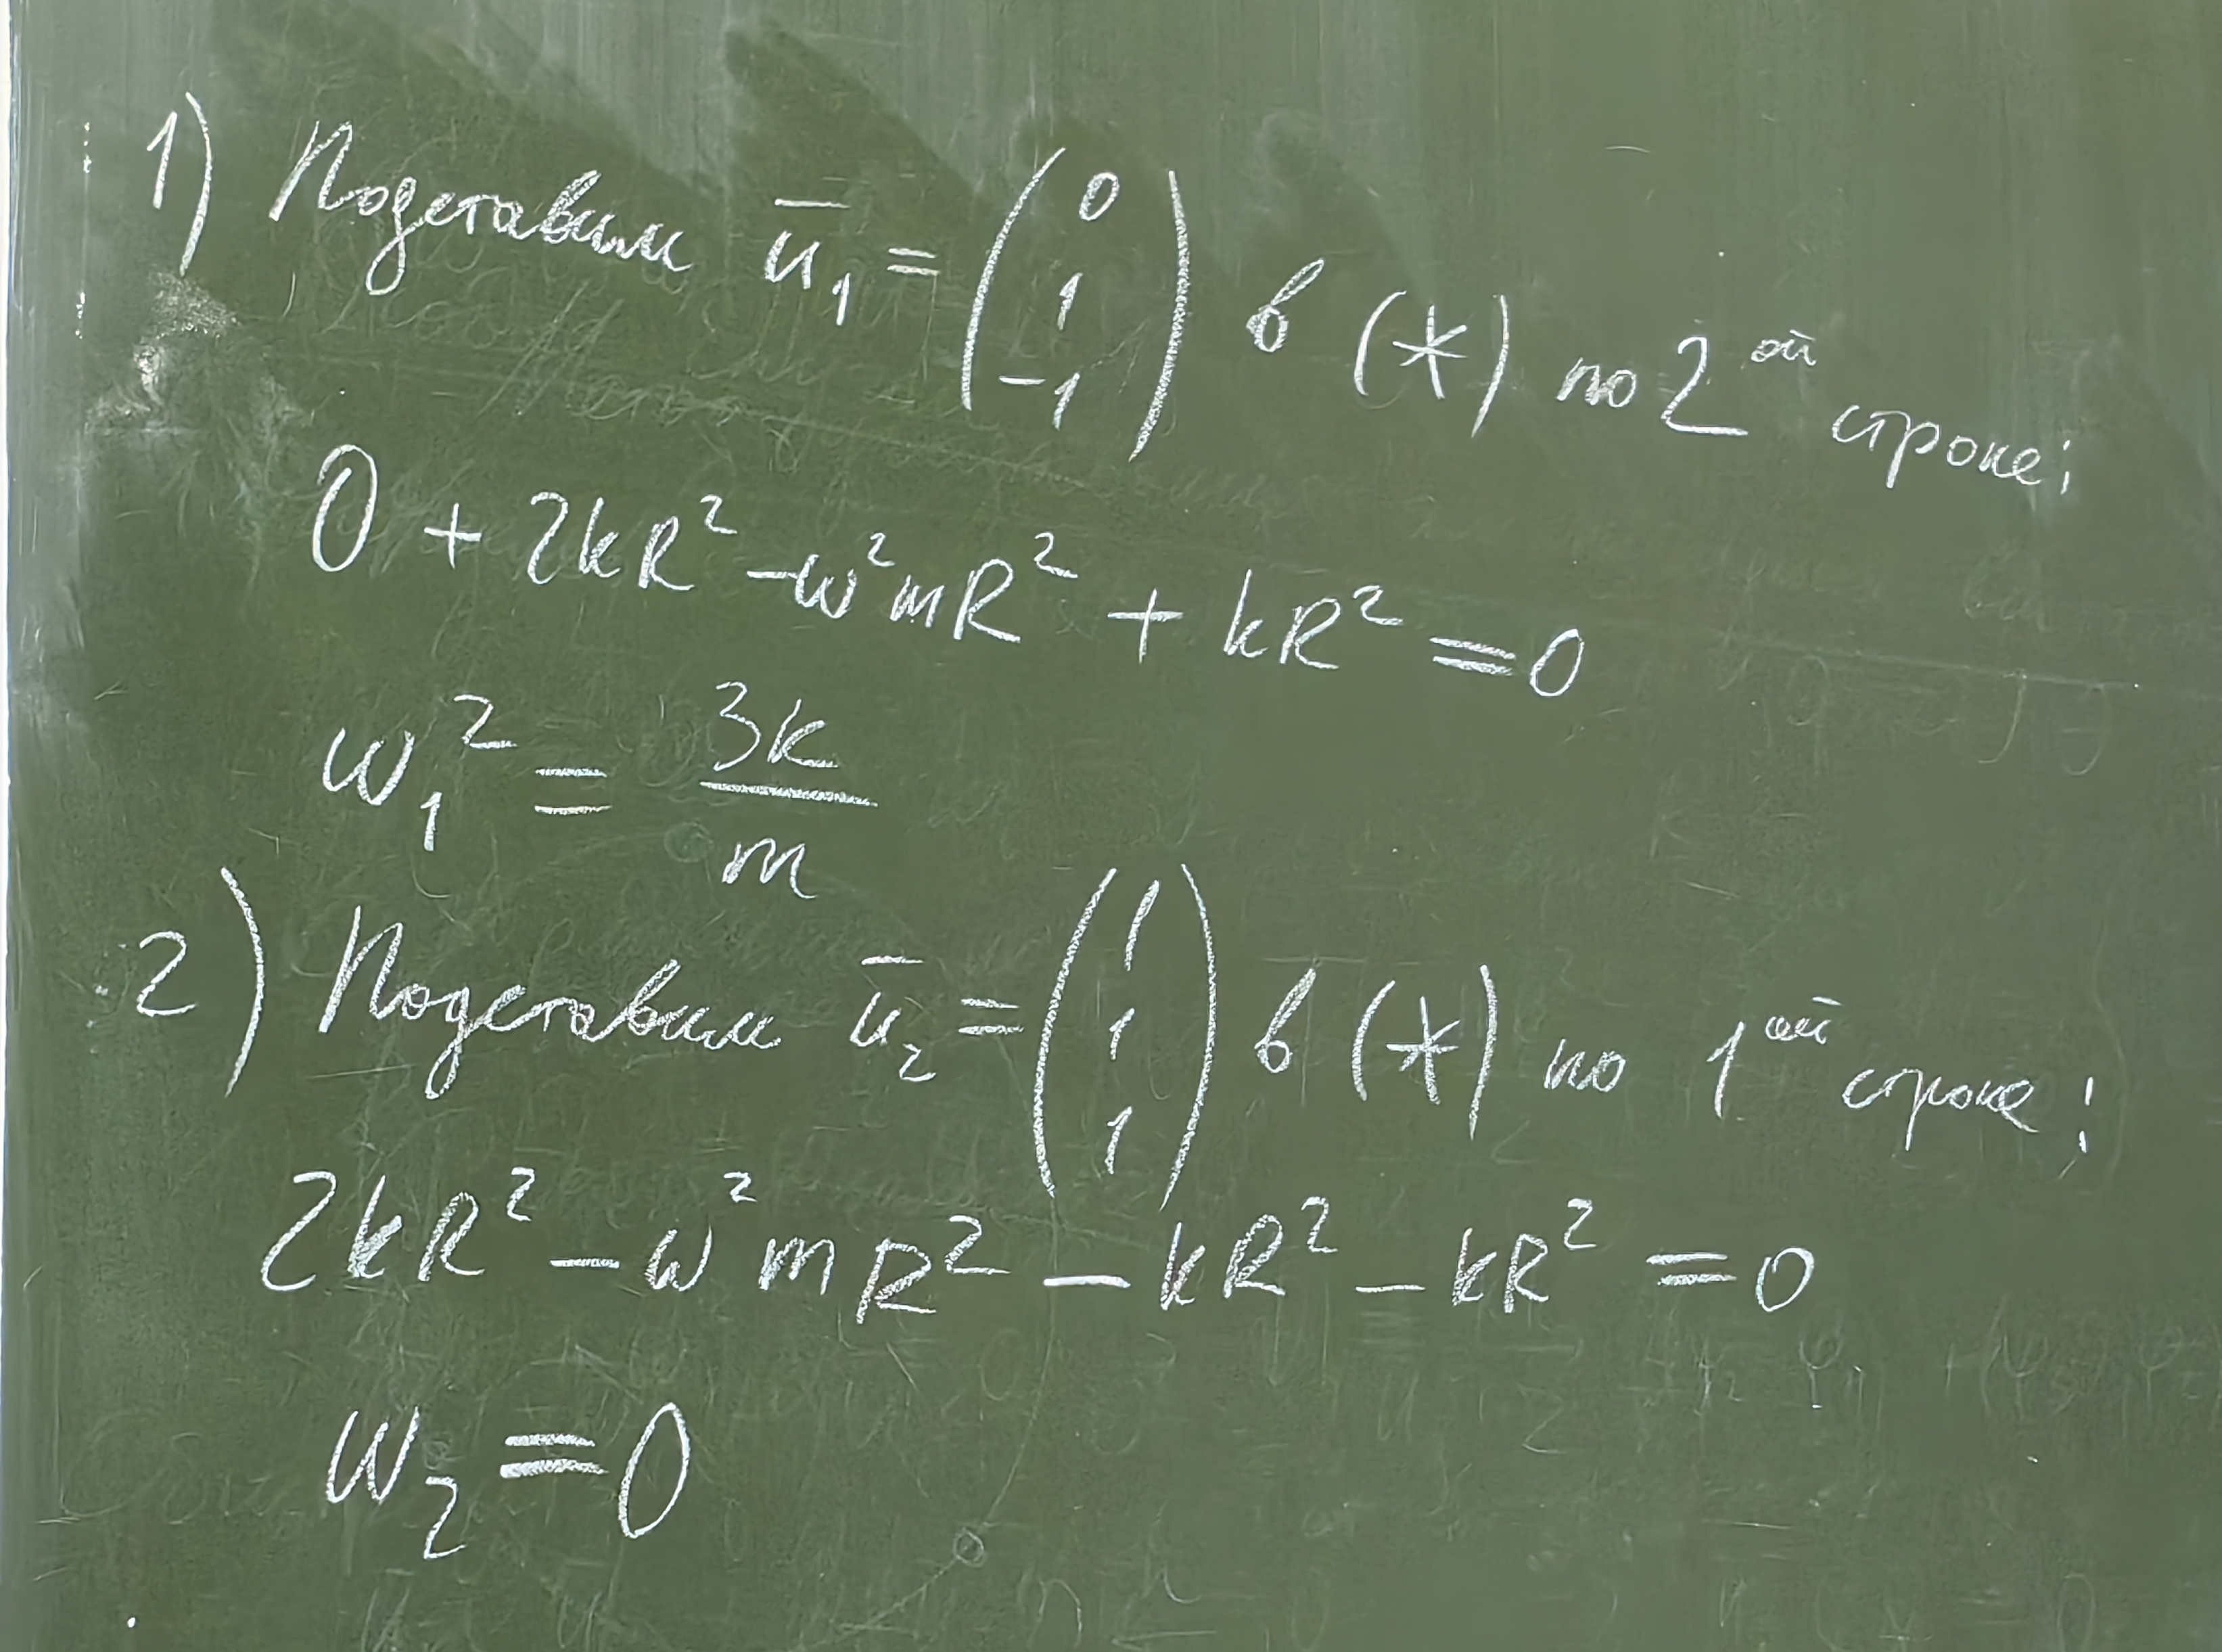 1) Подставим ū₁ = (0 1 -1) в (*) по 2ой строке:
0 + 2kR² - ω²mR² + kR² = 0
ω₁² = 3k/m
2) Подставим ū₂ = (1 1 1) в (*) по 1ой строке:
2kR² - ω²mR² - kR² - kR² = 0
ω₂ = 0